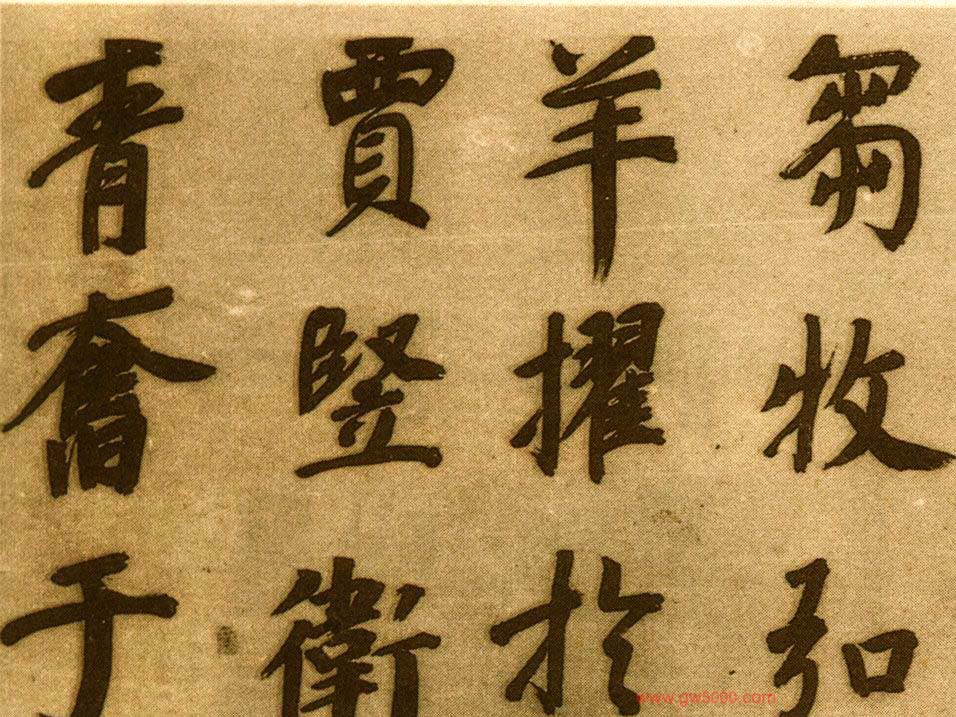 芻牧弘
羊擢於
賈豎衛
青奮于
www.gw5000.com